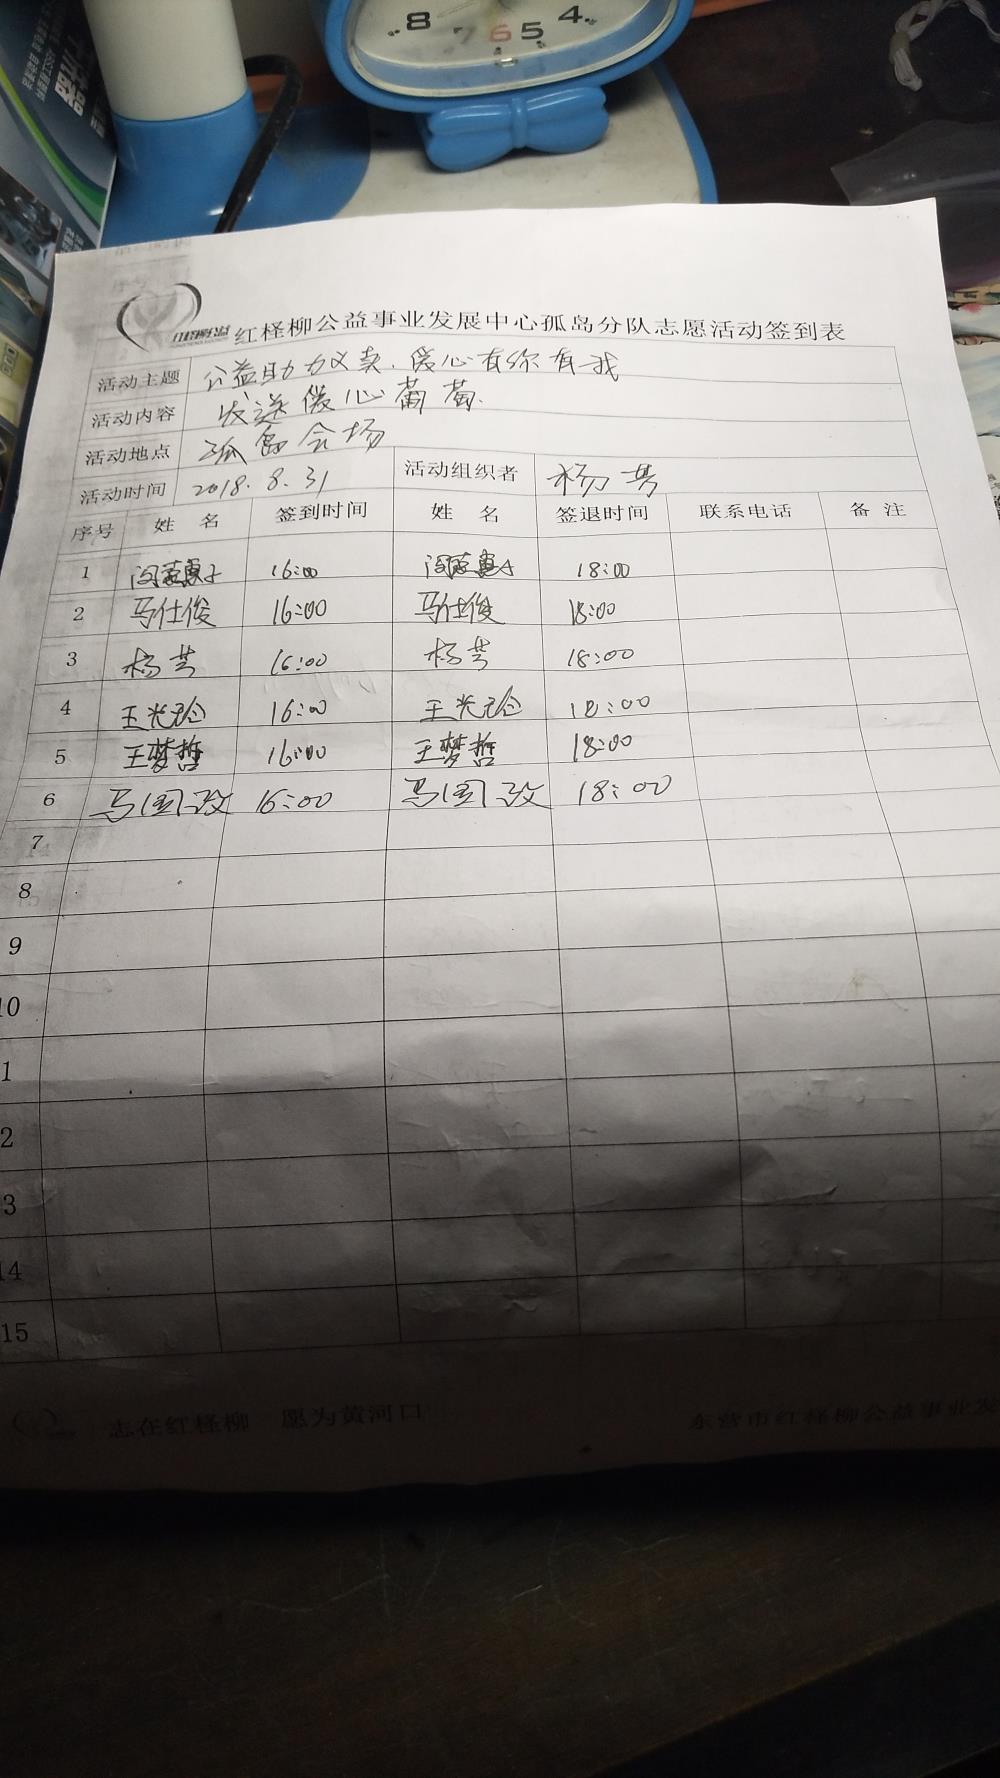 8 7 6 5 4
红柽柳公益事业发展中心孤岛分队志愿活动签到表
活动主题 公益助力义卖.爱心有你有我
活动内容 发送爱心葡萄.
活动地点 孤岛会场
活动时间 2018.8.31 活动组织者 杨芳
序号 姓 名 签到时间 姓 名 签退时间 联系电话 备 注
1 16:00 18:00
2 马仕俊 16:00 马仕俊 18:00
3 杨芸 16:00 杨芸 18:00
4 16:00 18:00
5 王梦哲 16:00 王梦哲 18:00
6 马国政 16:00 马国政 18:00
7
8
9
10
1
2
3
14
15
志在红柽柳 愿为黄河口 东营市红柽柳公益事业发